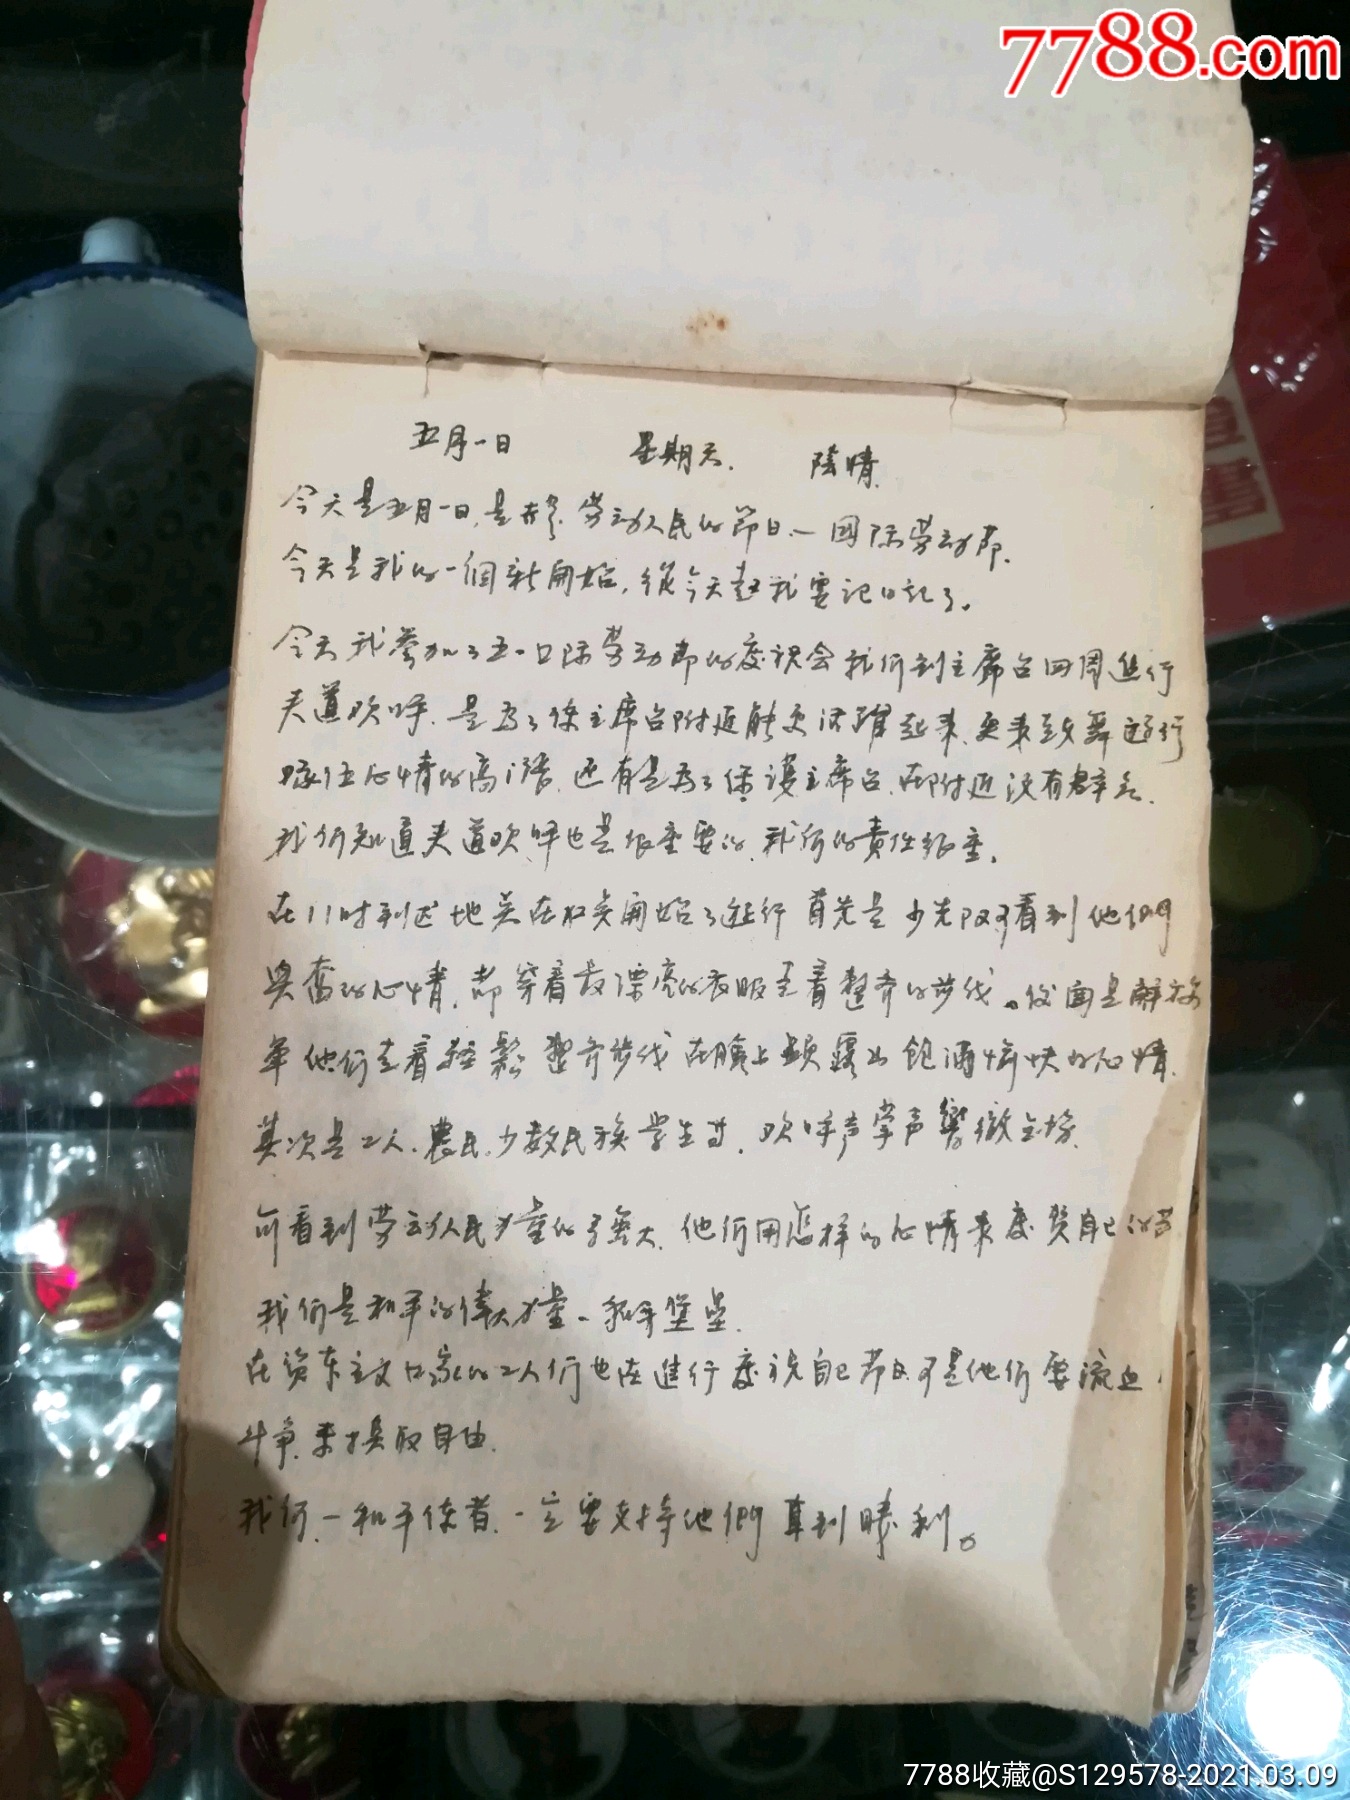 7788.com
五月一日 星期天. 陰晴.
今天是五月一日,是劳动人民的節日—國际劳动節.
今天是我的一個新開始,從今天起我要记日记了。
今天我參加了五一口际劳动節的庆祝会我们到主席台四周進行
夹道欢呼.是为了使主席台附近能更活躍起来.更来鼓舞遊行
隊伍心情的高漲.还有是为了保護主席台.在附近没有群众.
我们知道夹道欢呼也是很重要的.我们的責任很重。
在11时到达地点在
開始了遊行首先是少先队可看到他們
興奋的心情.都穿着最漂亮的衣服走着整齐的步伐。後面是解放
军他们走着轻鬆整齐步伐在臉上顯露出飽滿愉快的心情.
其次是工人.農民.少数民族学生等.欢呼声掌声響徹全场.
可看到劳动人民力量的强大.他们用怎样的心情来庆贺自己的节
我们是和平的偉大力量—和平堡垒.
在资本主义口家的工人们也在進行庆祝自己節日.可是他们要流血.
斗争.来換取自由.
我们—和平使者.一定要支持他們直到勝利。
7788收藏@S129578-2021.03.09